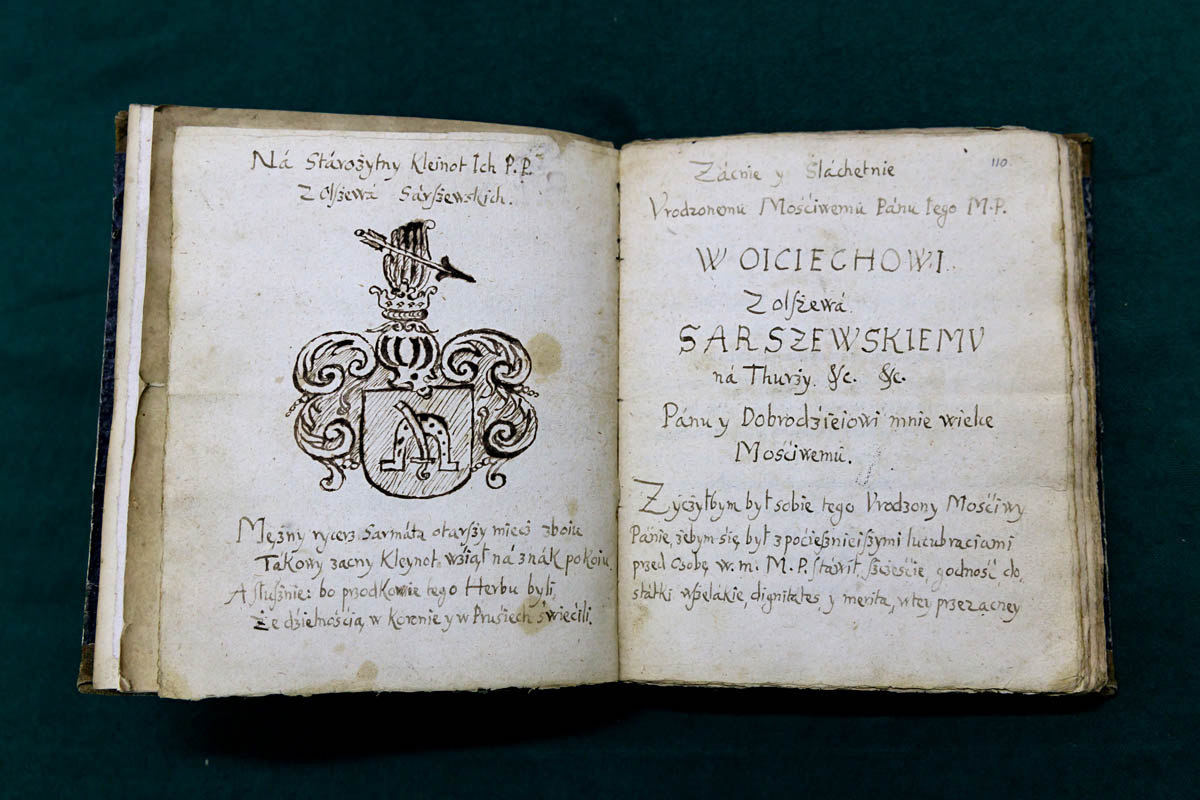 Ná Stárożytny Kleinot Ich P. P.
Z Olſzewá Sárſzewskich.
Mężny rycerz Sarmátá otarſzy miecz zboiu
Tákowy zacny Kleynot wźiął ná znák pokoiu.
A ſłuſznie: bo przodkowie tego Herbu byli,
Że dźielnośćią w Koronie y w Pruśiech świećili.
110
Zácnie y Sláchetnie
Vrodzonemu Mośćiwemu Pánu Iego M. P.
WOICIECHOWI
Z Olſzewá
SARSZEWSKIEMV
ná Thurży. &c. &c.
Pánu y Dobrodźieiowi mnie wielce
Mośćiwemu.
Zyczyłbym był sobie tego Vrodzony Mośćiwy
Pánie, żebym się był z poćieſznieiſzymi lucubraciami
przed Osobę w. m. M. P. ſtáwił, ſzcżęśćie, godność do,
státki wſzelákie, dignitates y merita, w tey przezacney